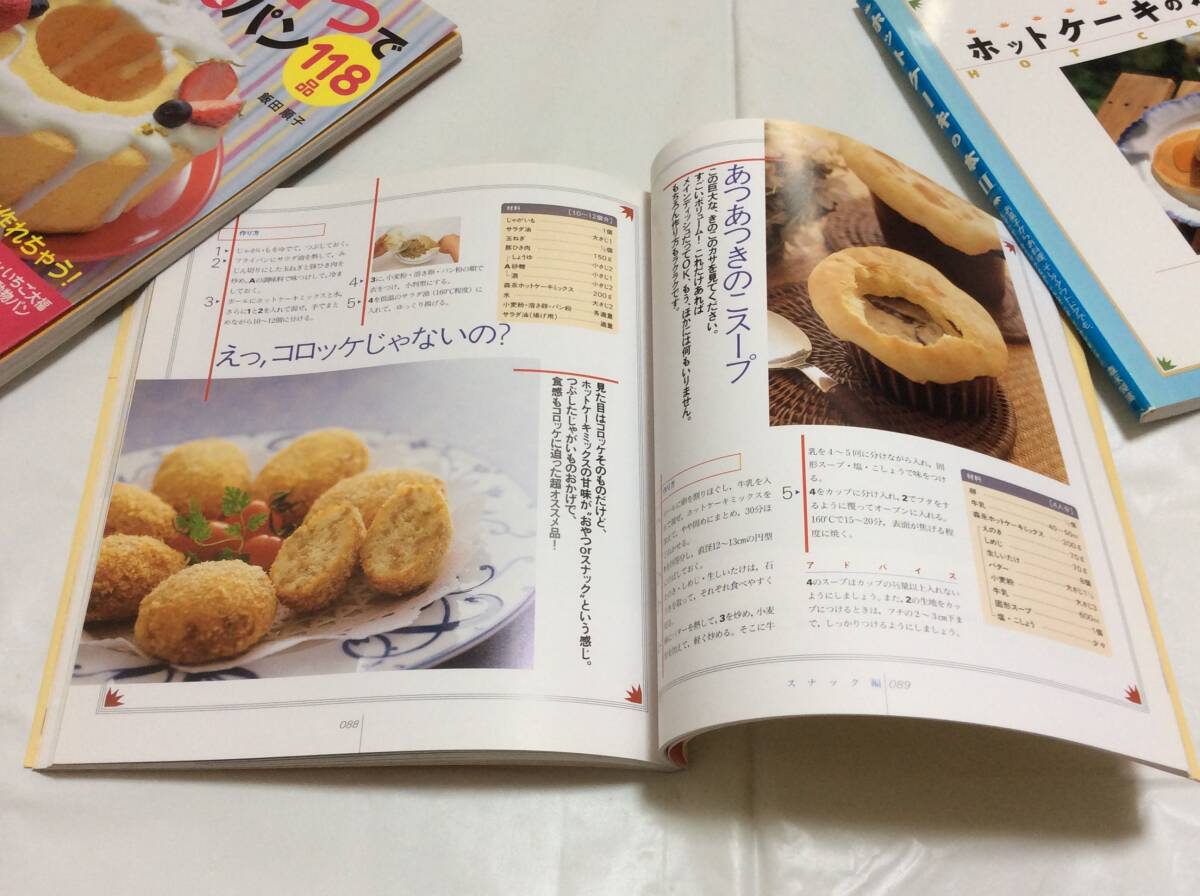 つで
パン
118
品
飯田順子
作れちゃう!
いちご大福
動物パン
ホットケーキの
HOT CA
ホットケーキの本
作り方
1 じゃがいもをゆでて、つぶしておく。
2 フライパンにサラダ油を熱して、み
じん切りにした玉ねぎと豚ひき肉を
炒め、Aの調味料で味つけして、冷ま
しておく。
3 ボールにホットケーキミックスと水、
さらに1と2を入れて混ぜ、手でまと
めながら10〜12個に分ける。
4 3に、小麦粉・溶き卵・パン粉の順で
衣をつけ、小判型にする。
5 4を低温のサラダ油(160℃程度)に
入れて、ゆっくり揚げる。
材料 [10〜12個分]
じゃがいも 1個
サラダ油 大さじ1
玉ねぎ
豚ひき肉 150g
しょうゆ 小さじ2
A 砂糖 小さじ2
酒 小さじ1
森永ホットケーキミックス 200g
水 大さじ2
小麦粉・溶き卵・パン粉 各適量
サラダ油(揚げ用) 適量
えっ,コロッケじゃないの?
見た目はコロッケそのものだけど、
ホットケーキミックスの甘味が“おやつorスナック”という感じ。
つぶしたじゃがいものおかげで、
食感もコロッケに迫った超オススメ品!
088
あつあつきのこスープ
この巨大な、きのこのカサを見てください。
すごいボリューム!これだけあれば
メインディッシュだってOK。もう、ほかには何もいりません。
もちろん作り方もラクラクです。
作り方
ールに卵を割りほぐし、牛乳を入
て混ぜ、ホットケーキミックスを
えて、やや固めにまとめ、30分ほ
かせる。
等分し、直径12〜13cmの円型
ばしておく。
のき・しめじ・生しいたけは、石
を取って、それぞれ食べやすく
る。
にバターを熱して、3を炒め、小麦
を加えて、軽く炒める。そこに牛
乳を4〜5回に分けながら入れ、固
形スープ・塩・こしょうで味をつけ
る。
5 4をカップに分け入れ、2でフタをす
るように覆ってオーブンに入れる。
160℃で15〜20分、表面が焦げる程
度に焼く。
アドバイス
4のスープはカップの⅔量以上入れない
ようにしましょう。また、2の生地をカッ
プにつけるときは、フチの2〜3cm下ま
で、しっかりつけるようにしましょう。
材料 [4人分]
卵
牛乳
森永ホットケーキミックス 200g
えのき 70g
しめじ 70g
生しいたけ 8個
バター
小麦粉 大さじ3
牛乳 600cc
固形スープ 1個
塩・こしょう 少々
スナック編 089